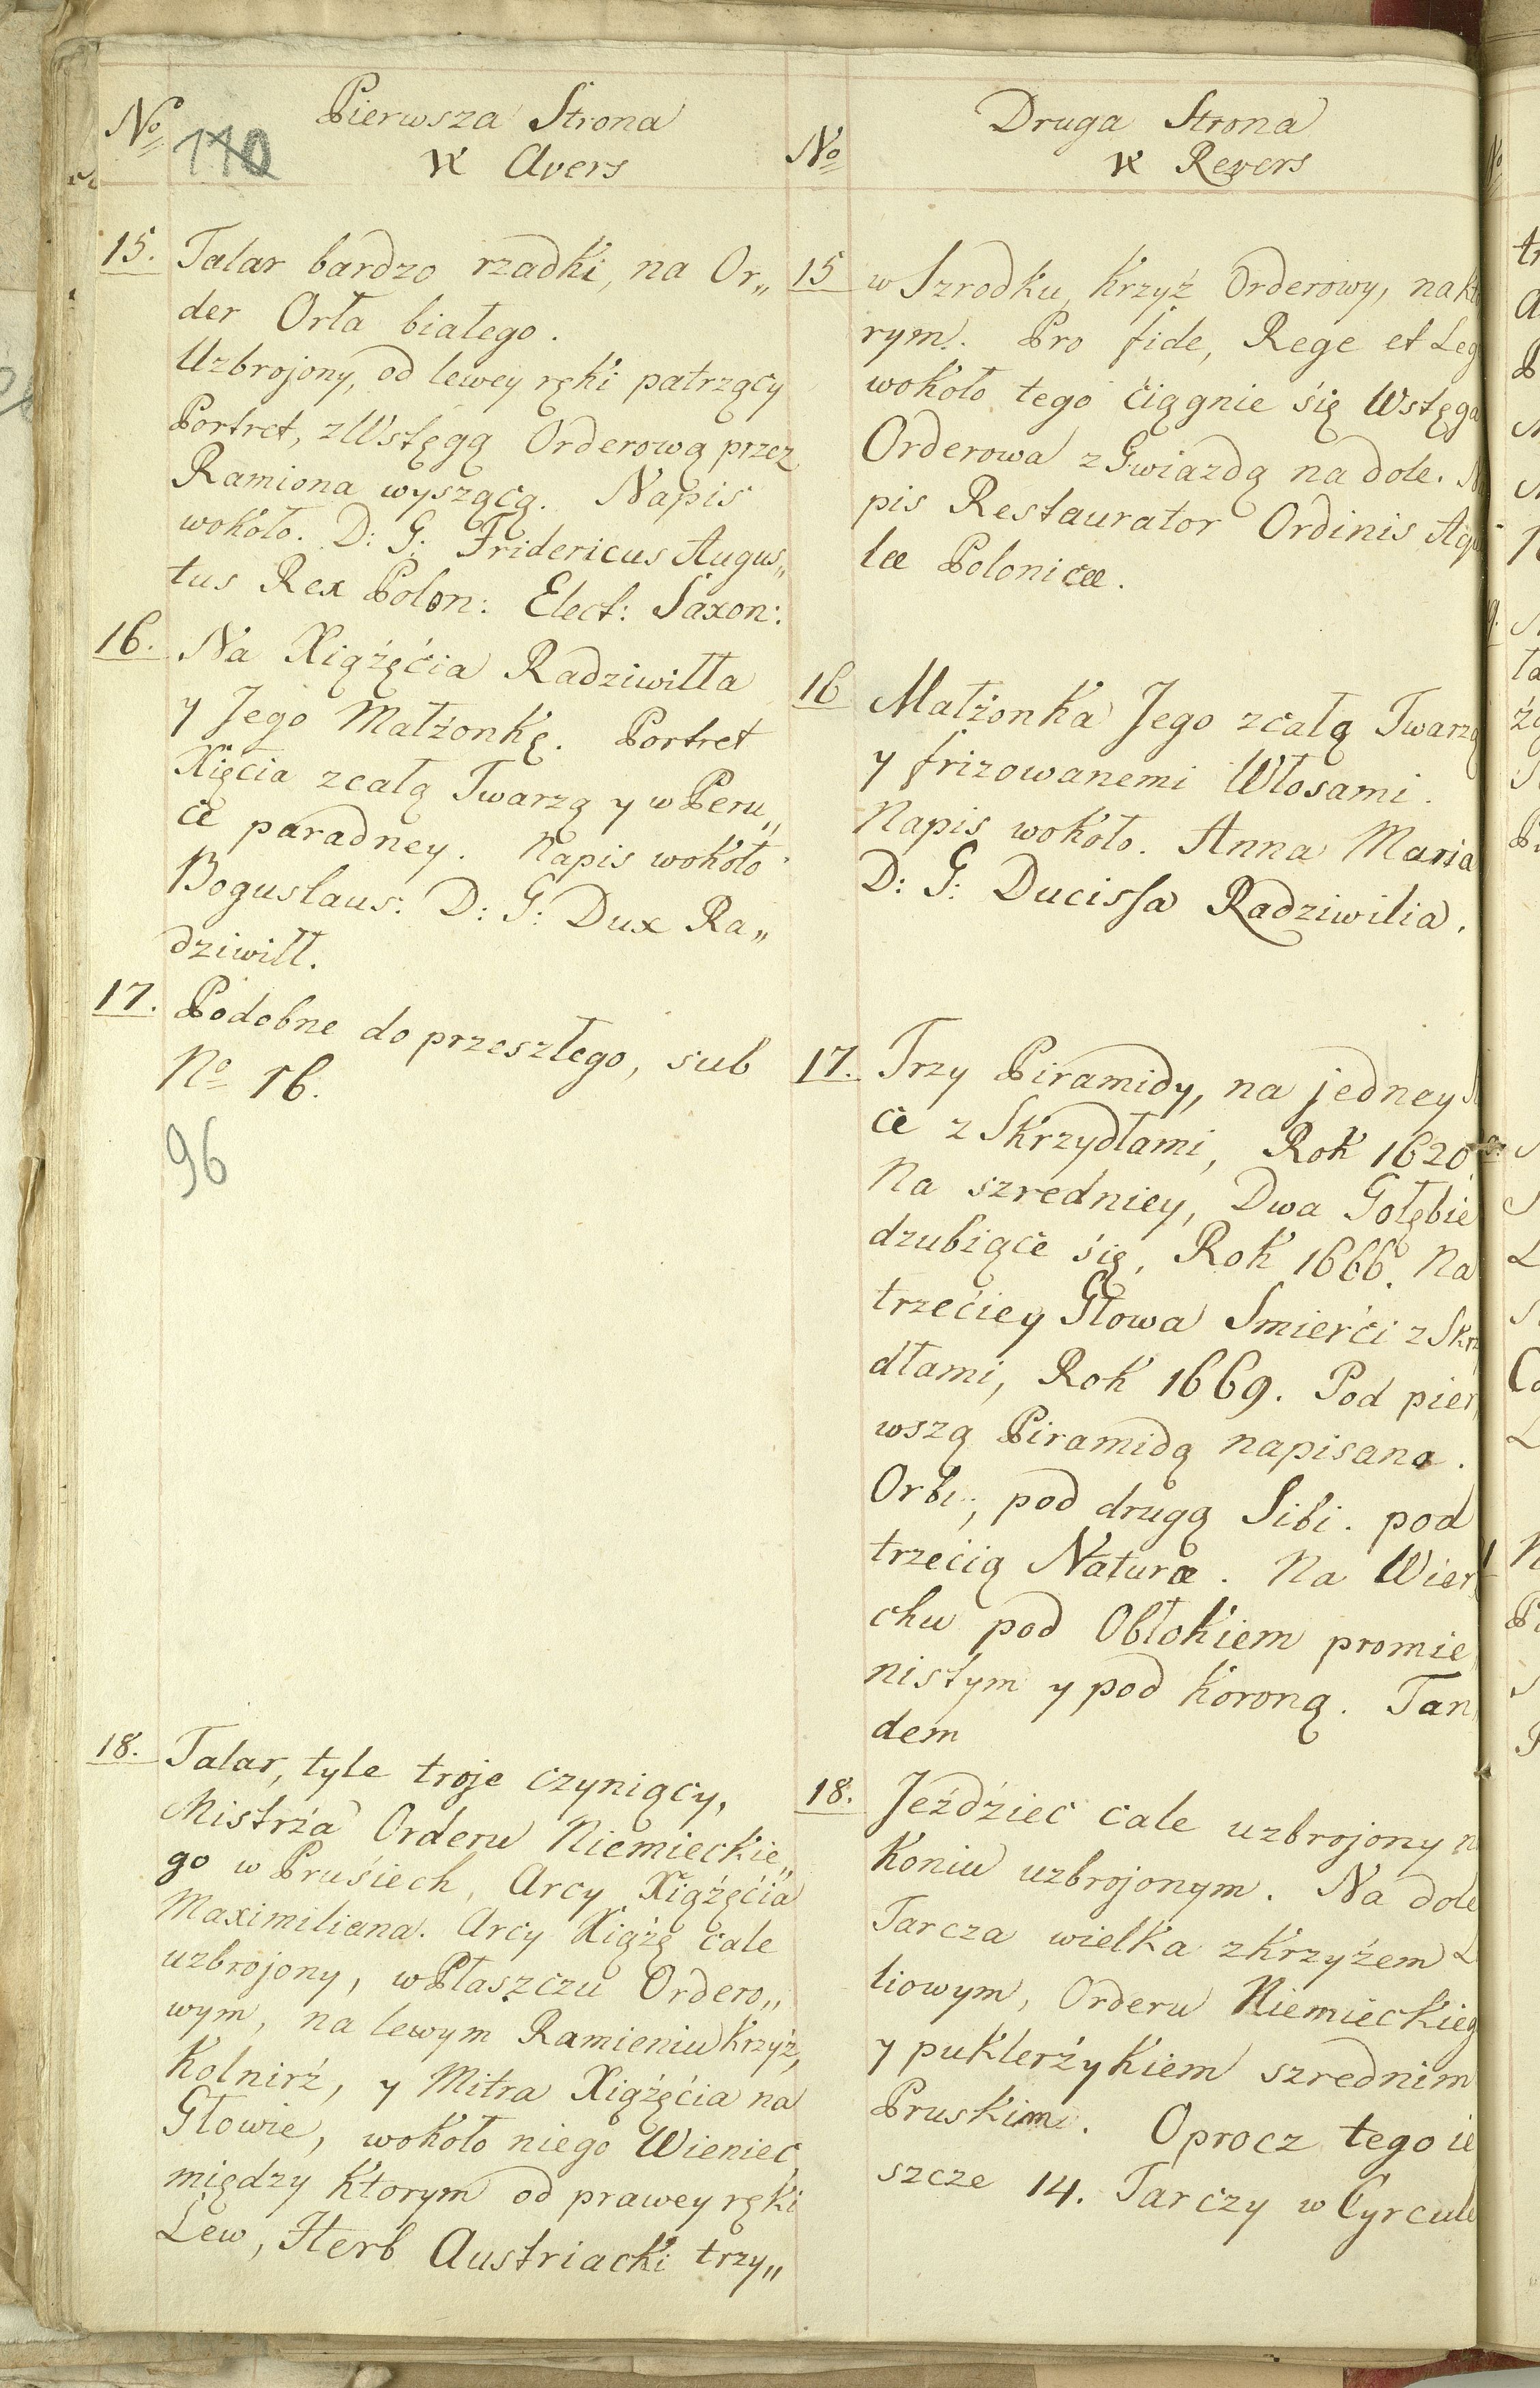 No
110
Pierwsza Strona
Avers
15. Talar bardzo rzadki, na Or„
der Orła białego.
Uzbrojony, od lewey ręki patrzący
Portret, z Wstęgą Orderową przez
Ramiona wyszącą. Napis
wokoło. D: G: Fridericus Augus„
tus Rex Polon: Elect: Saxon:
16. Na Xiążęćia Radziwiłła
y Jego Małżonkę. Portret
Xięcia z całą Twarzą y w Peru„
ce paradney. Napis wokoło
Boguslaus: D: G: Dux Ra„
dziwiłł.
17. Podobne do przeszłego, sub
No 16.
96
18. Talar, tyle troje czyniący,
Mistrźa Orderu Niemieckie„
go w Pruśiech, Arcy Xiążęćia
Maximiliana. Arcy Xiążę cale
uzbrojony, w Płaszczu Ordero„
wym, na lewym Ramieniu Krzyż,
Kolnirż, y Mitra Xiążęćia na
Głowie, wokoło niego Wieniec,
między Ktorym od prawey ręki
Lew, Herb Austriacki trzy„
No
Druga Strona
Revers
15 w Szrodku, Krzyż Orderowy, na kt
rym. Pro fide, Rege et Leg
wokoło tego ćiągnie się Wstęga
Orderowa z Gwiazdą na dole. N
pis Restaurator Ordinis Aqu
læ Polonicæ.
16 Małżonka Jego z całą Twarzą
y frizowanemi Włosami.
Napis wokoło. Anna Maria
D: G: Ducissa Radziwilia.
17. Trzy Piramidy, na jedney
ce z Skrzydłami, Rok 1620.
Na szredniey, Dwa Gołębie
dzubiące się, Rok 1666. Na
trzećiey Głowa Smierći z Skrz
dłami, Rok 1669. Pod pier
wszą Piramidą napisano.
Orbi, pod drugą Sibi. pod
trzećią Naturæ. Na Wier
chu pod Obłokiem promie
nistym y pod Koroną. Tan
dem
18. Jeźdźiec cale uzbrojony n
Koniu uzbrojonym. Na dole
Tarcza wielka z Krzyżem L
liowym, Orderu Niemieckieg
y puklerżykiem szrednim
Pruskim. Oprocz tego ie
szcze 14. Tarczy w Cyrcule